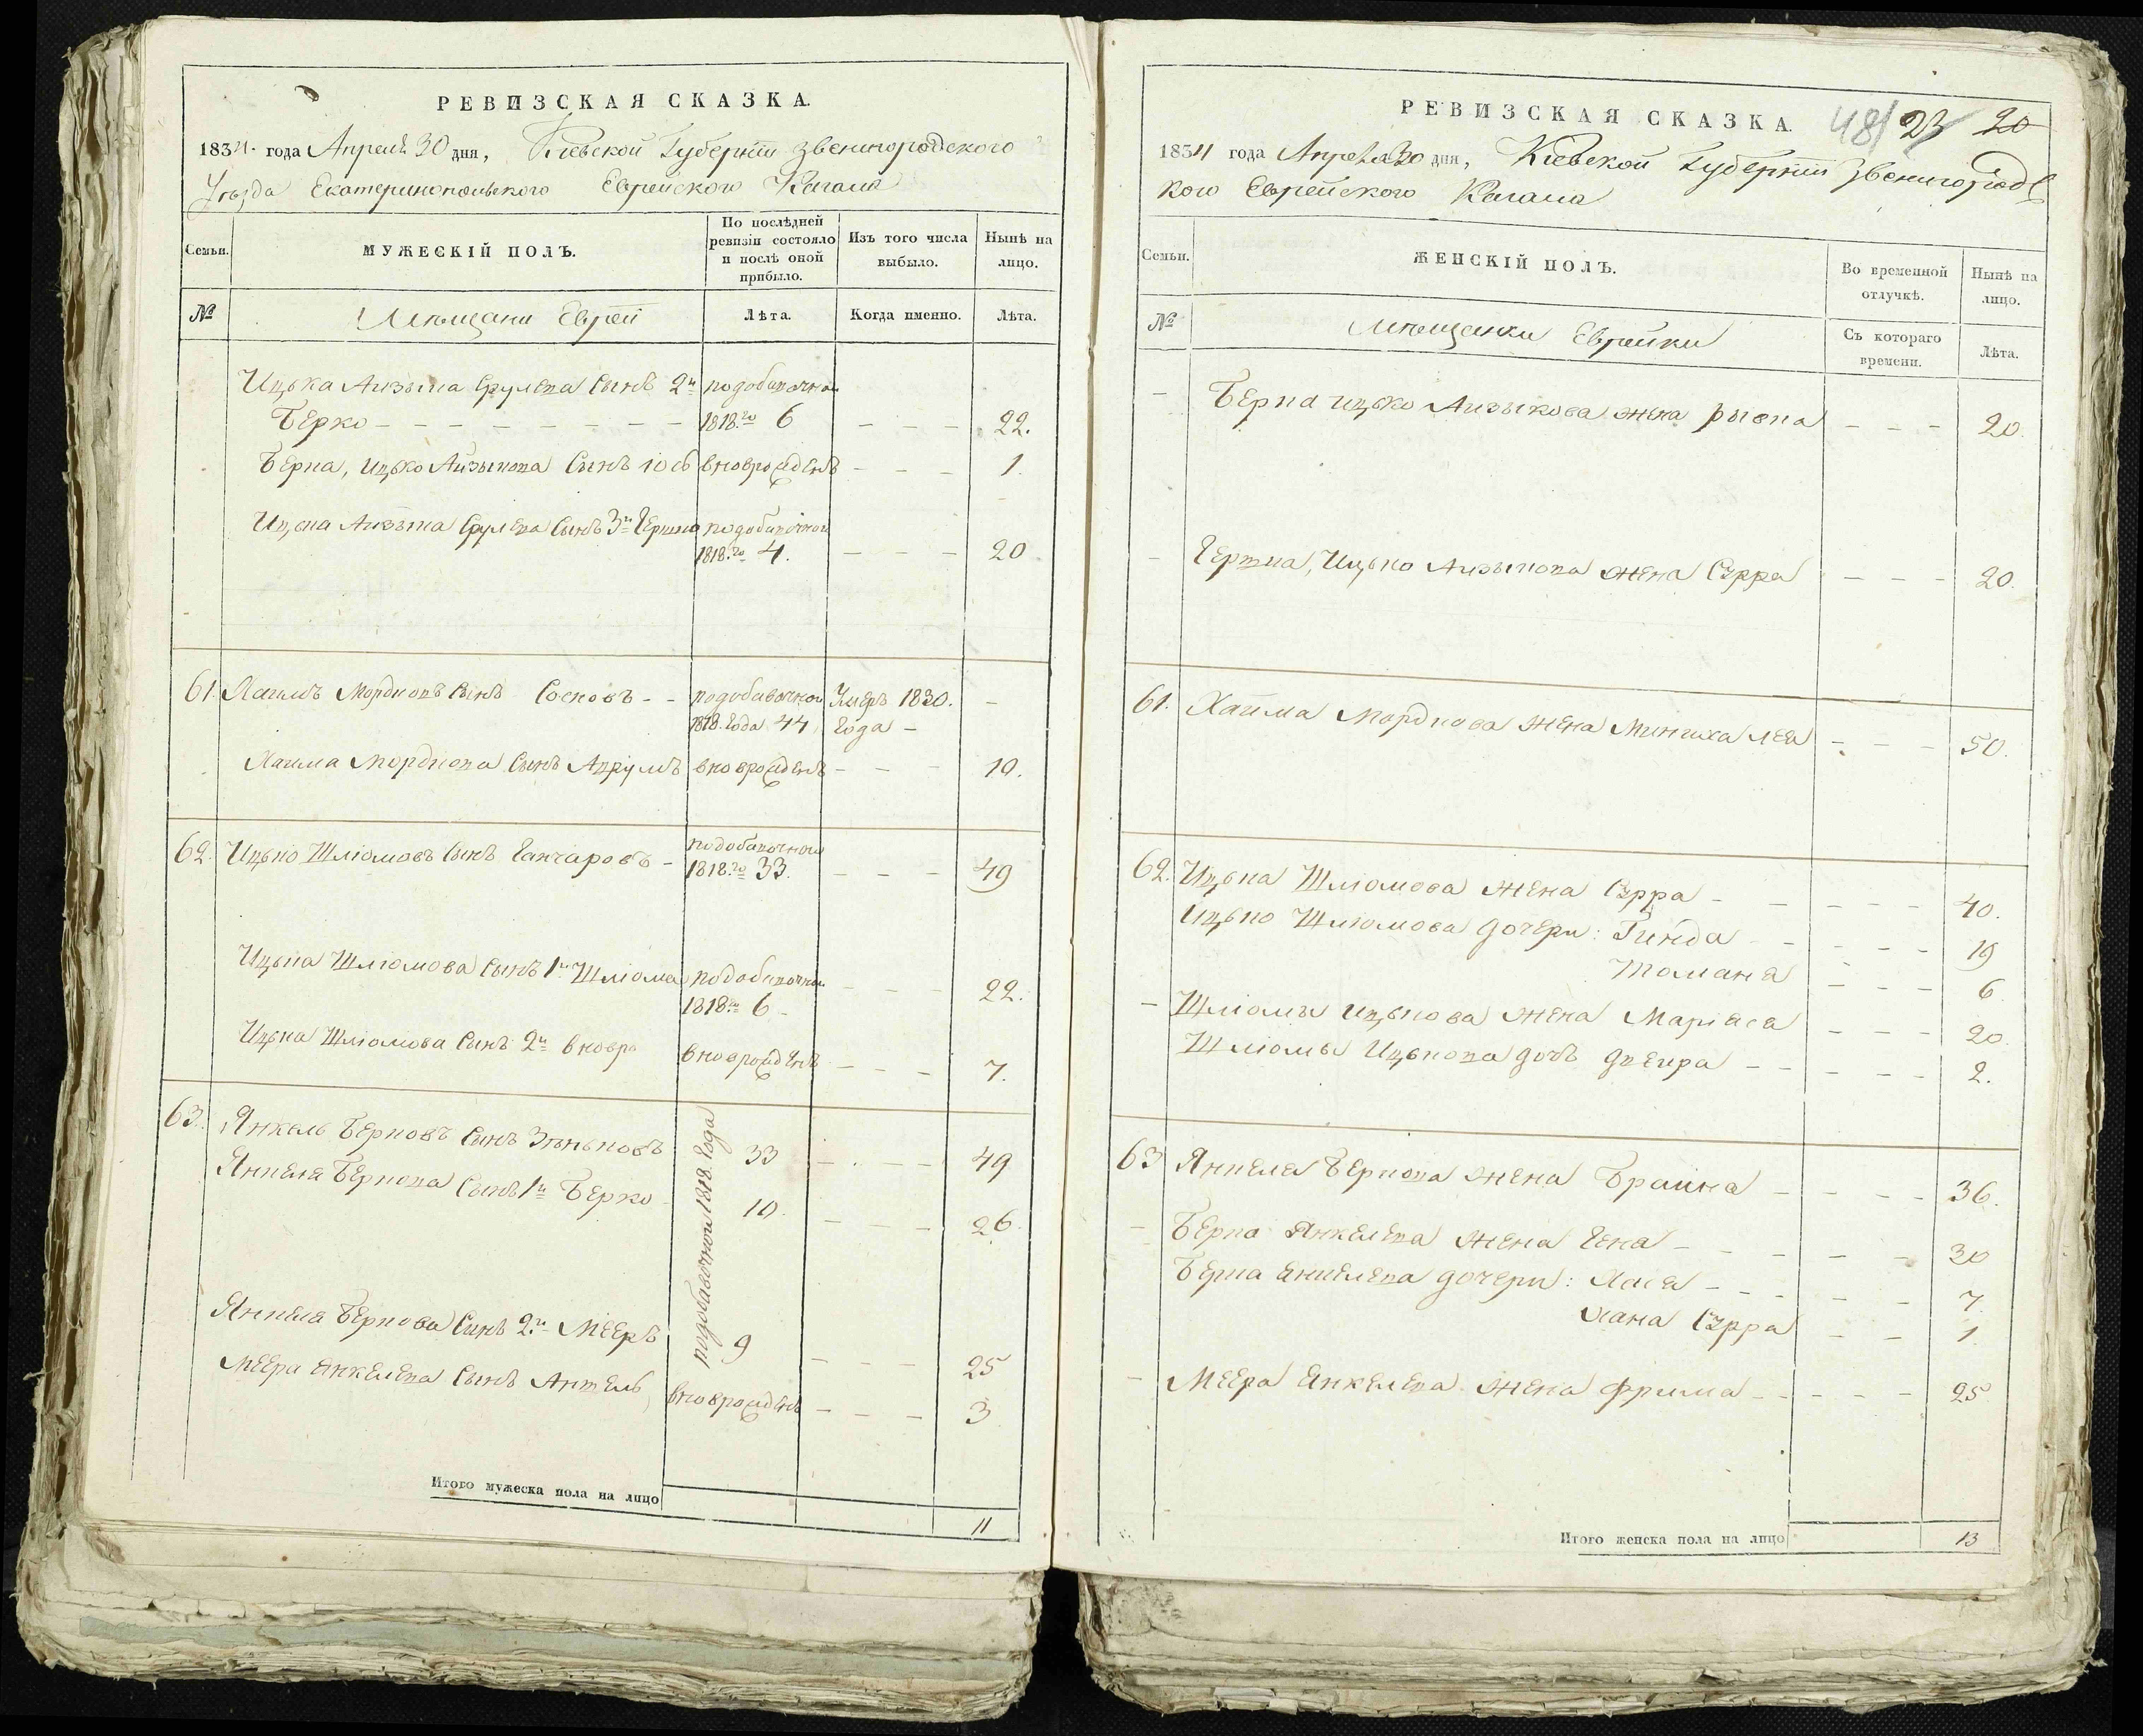 РЕВИЗСКАЯ СКАЗКА.
1834 года Апреля 30 дня, Кіевской Губерніи Звенигородского
Уѣзда Екатеринопольского Еврейского Кагала
Семьи.
МУЖЕСКІЙ ПОЛЪ.
По послѣдней ревизіи состояло и послѣ оной прибыло.
Изъ того числа выбыло.
Нынѣ на лицо.
№
Мѣщани Еврей
Лѣта.
Когда именно.
Лѣта.
Ицька Айзыка Срулева Сынъ 2й подобавочной
Берко 1818го 6 22.
Берка, Ицько Айзыкова Сынъ вноврожденъ 1.
Ицька Айзыка Срулева Сынъ 3й Гершко подобавочной
1818го 4. 20
61. Хаимъ Мордковъ Сынъ Сосновъ подобавочной Умеръ 1830.
1818 Года 44 Года
Хаима Мордкова Сынъ вноврожденъ 10.
62. Ицько Шліомовъ Сынъ Ганчаровъ подобавочной
1818го 33. 49
Ицька Шліомова Сынъ 1й Шліома подобавочной
1818го 6 22.
Ицька Шліомова Сынъ 2й вновро вноврожденъ 7.
63. Янкель Берковъ Сынъ Зѣньковъ 33 49
подобавочной 1818 Года
Янкеля Беркова Сынъ 1й Берко 10. 26
Янкеля Беркова Сынъ 2й Мееръ 9 25
Меера Янкелева Сынъ вноврожденъ 3
Итого мужеска пола на лицо
11
РЕВИЗСКАЯ СКАЗКА.
48/ 23 20
1834 года Апреля 30 дня, Кіевской Губерніи Звенигородс
кого Еврейского Кагала
Семьи.
ЖЕНСКІЙ ПОЛЪ.
Во временной отлучкѣ.
Нынѣ на лицо.
№
Мѣщанки Еврейки
Съ котораго времени.
Лѣта.
Берка Ицько Айзыкова жена 20.
Гершка, Ицько Айзыкова жена Сурра 20.
61. Хаима Мордкова жена 50.
62. Ицька Шліомова жена Сурра 40.
Ицько Шліомова дочери: Гинда 19
6
Шліомы Ицькова жена Маріася 20
Шліомы Ицькова дочъ Двейра 2.
63 Янкеля Беркова жена Браина 36.
Берка Янкелева жена Гена 30
Берка Енкелева дочери: Хася 7
Хана Сурра 1
Меера Енкелева жена Фрима 25
Итого женска пола на лицо
13